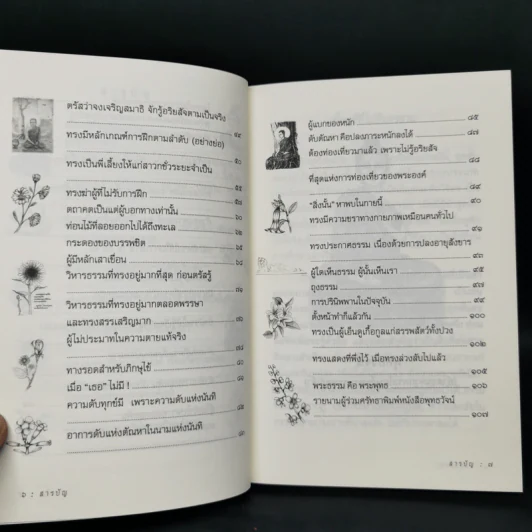 ตรัสว่าจงเจริญสมาธิ จักรู้อริยสัจตามเป็นจริง
ทรงมีหลักเกณฑ์การฝึกตามลำดับ (อย่างย่อ)
ทรงเป็นพี่เลี้ยงให้แก่สาวกชั่วระยะจำเป็น
ทรงฆ่าผู้ที่ไม่รับการฝึก
ตถาคตเป็นแต่ผู้บอกทางเท่านั้น
ท่อนไม้ที่ลอยออกไปได้ถึงทะเล
กระดองของบรรพชิต
ผู้มีหลักเสาเขื่อน
วิหารธรรมที่ทรงอยู่มากที่สุด ก่อนตรัสรู้
วิหารธรรมที่ทรงอยู่มากตลอดพรรษา
และทรงสรรเสริญมาก
ผู้ไม่ประมาทในความตายแท้จริง
ทางรอดสำหรับภิกษุไข้
เมื่อ "เธอ" ไม่มี !
ความดับทุกข์มี เพราะความดับแห่งนันทิ
อาการดับแห่งตัณหาในนามแห่งนันทิ
: สารบัญ
ผู้แบกของหนัก ๘๕
ดับตัณหา คือปลงภาระหนักลงได้ ๘๗
ต้องท่องเที่ยวมาแล้ว เพราะไม่รู้อริยสัจ
๘๘
ที่สุดแห่งการท่องเที่ยวของพระองค์
๘๙
"สิ่งนั้น" หาพบในกายนี้ ๙๐
ทรงมีความชราทางกายภาพเหมือนคนทั่วไป
๙๑
ทรงประกาศธรรม เนื่องด้วยการปลงอายุสังขาร
๙๓
ผู้ใดเห็นธรรม ผู้นั้นเห็นเรา ๙๕
ถุงธรรม ๙๗
การปรินิพพานในปัจจุบัน ๙๙
ตั้งหน้าทำก็แล้วกัน ๑๐๐
ทรงเป็นผู้เอ็นดูเกื้อกูลแก่สรรพสัตว์ทั้งปวง
๑๐๒
ทรงแสดงที่พึ่งไว้ เมื่อทรงล่วงลับไปแล้ว
๑๐๕
พระธรรม คือ พระพุทธ ๑๐๖
รายนามผู้ร่วมศรัทธาพิมพ์หนังสือพุทธวัจน์
๑๐๗
สารบัญ : ๗